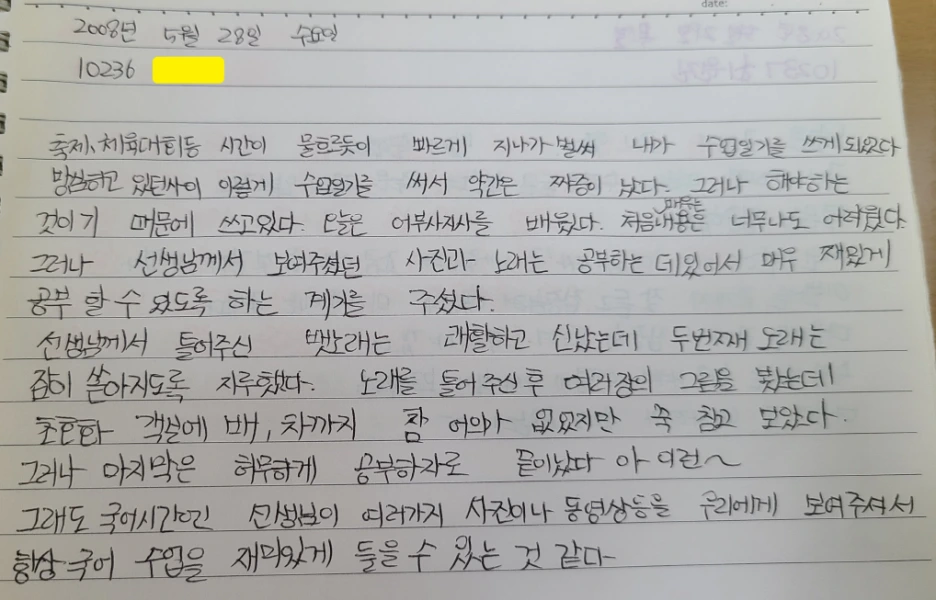 date:
2008년 5월 28일 수요일
10236
축제, 체육대회등 시간이 물흐르듯이 빠르게 지나가 벌써 내가 수업일기를 쓰게되었다
방심하고 있던사이 이렇게 수업일기를 써서 약간은 짜증이 났다. 그러나 해야하는
것이기 때문에 쓰고있다. 오늘은 어부사시사를 배웠다. 처음 배우는 내용은 너무나도 어려웠다.
그러나 선생님께서 보여주셨던 사진과 노래는 공부하는 데있어서 매우 재밌게
공부 할 수 있도록 하는 계기를 주셨다.
선생님께서 들어주신 뱃노래는 쾌활하고 신났는데 두번째 노래는
잠이 쏟아지도록 지루했다. 노래를 들어주신 후 여러장의 그림을 봤는데
초호화 객실에 배, 차까지 참 어이가 없었지만 쭉 참고 보았다.
그러나 마지막은 허무하게 공부하자로 끝이났다 아 이런~
그래도 국어시간인 선생님이 여러가지 사진이나 동영상등을 우리에게 보여주셔서
항상 국어 수업을 재미있게 들을 수 있는 것 같다